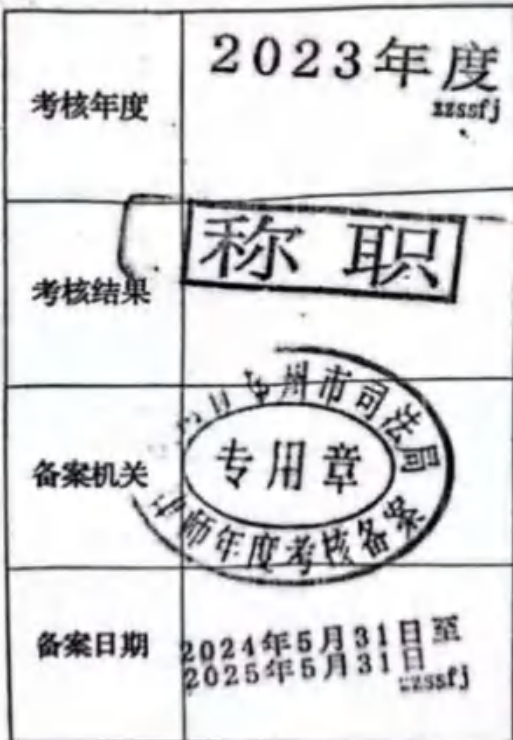 考核年度
2023年度
zzssfj
考核结果
称职
备案机关
州市司法局
专用章
师年度考核备案
备案日期
2024年5月31日至
2025年5月31日
zzssfj